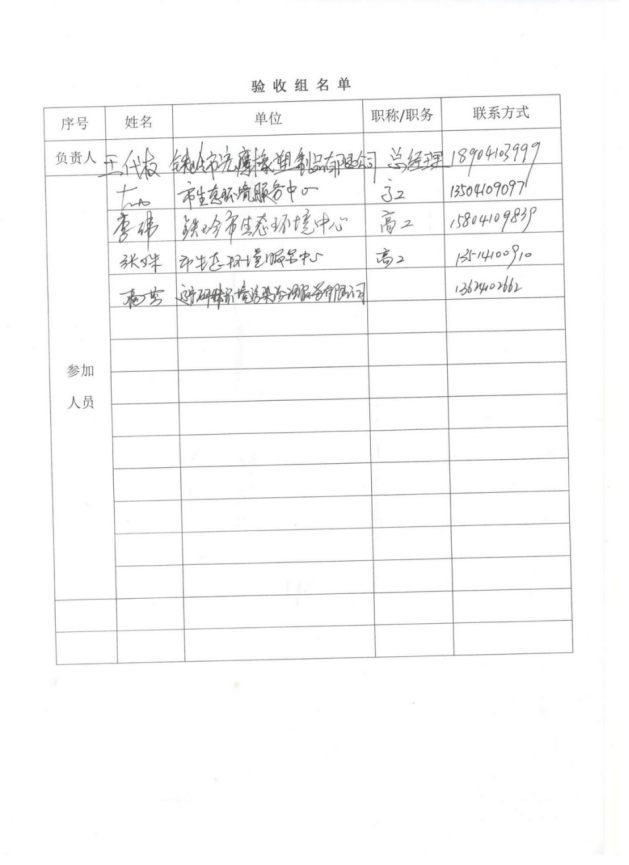 验收组名单
序号 姓名 单位 职称/职务 联系方式
负责人 王 铁岭市 橡塑制品有限公司 总经理 18904103999
市生态环境服务中心 高工 13504109097
李伟 铁岭市生态环境中心 高工 15804109839
张姝 市生态环境服务中心 高工 13514100910
环境污染治理服务有限公司 13624102662
参加
人员